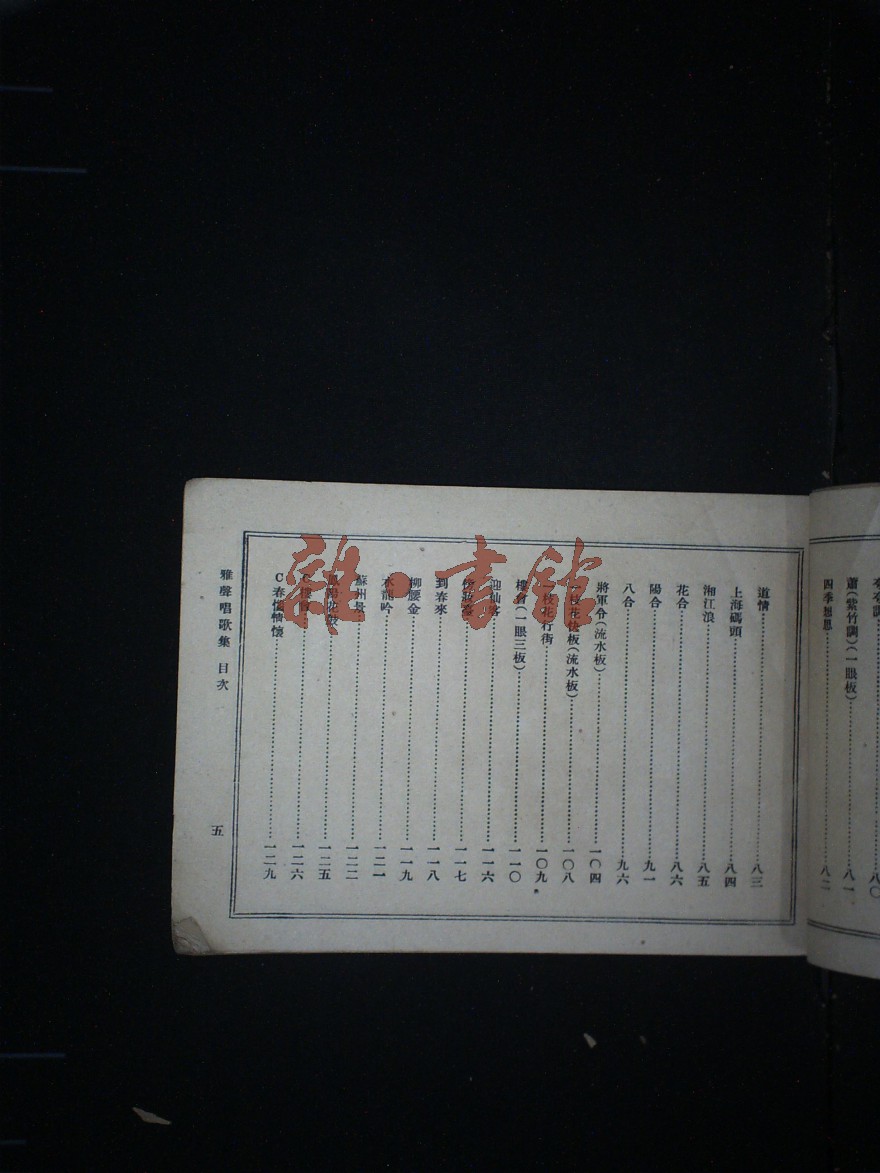 四季想思⋯⋯八二
蕭(紫竹調)(一眼板)⋯⋯八一
八〇
道情⋯⋯八三
上海碼頭⋯⋯八四
湘江浪⋯⋯八五
花合⋯⋯八六
陽合⋯⋯九一
八合⋯⋯九六
將軍令(流水板)⋯⋯一〇四
枝花快板(流水板)⋯⋯一〇八
枝花行街⋯⋯一〇九
樓會(一眼三板)⋯⋯一一〇
迎仙客⋯⋯一一六
傍妝臺⋯⋯一一七
到春來⋯⋯一一八
柳腰金⋯⋯一一九
水龍吟⋯⋯一二一
蘇州景⋯⋯一二二
鳳陽花鼓⋯⋯一二五
一二六
C春懷情懷⋯⋯一二九
雅聲唱歌集 目次
五
雜·書館